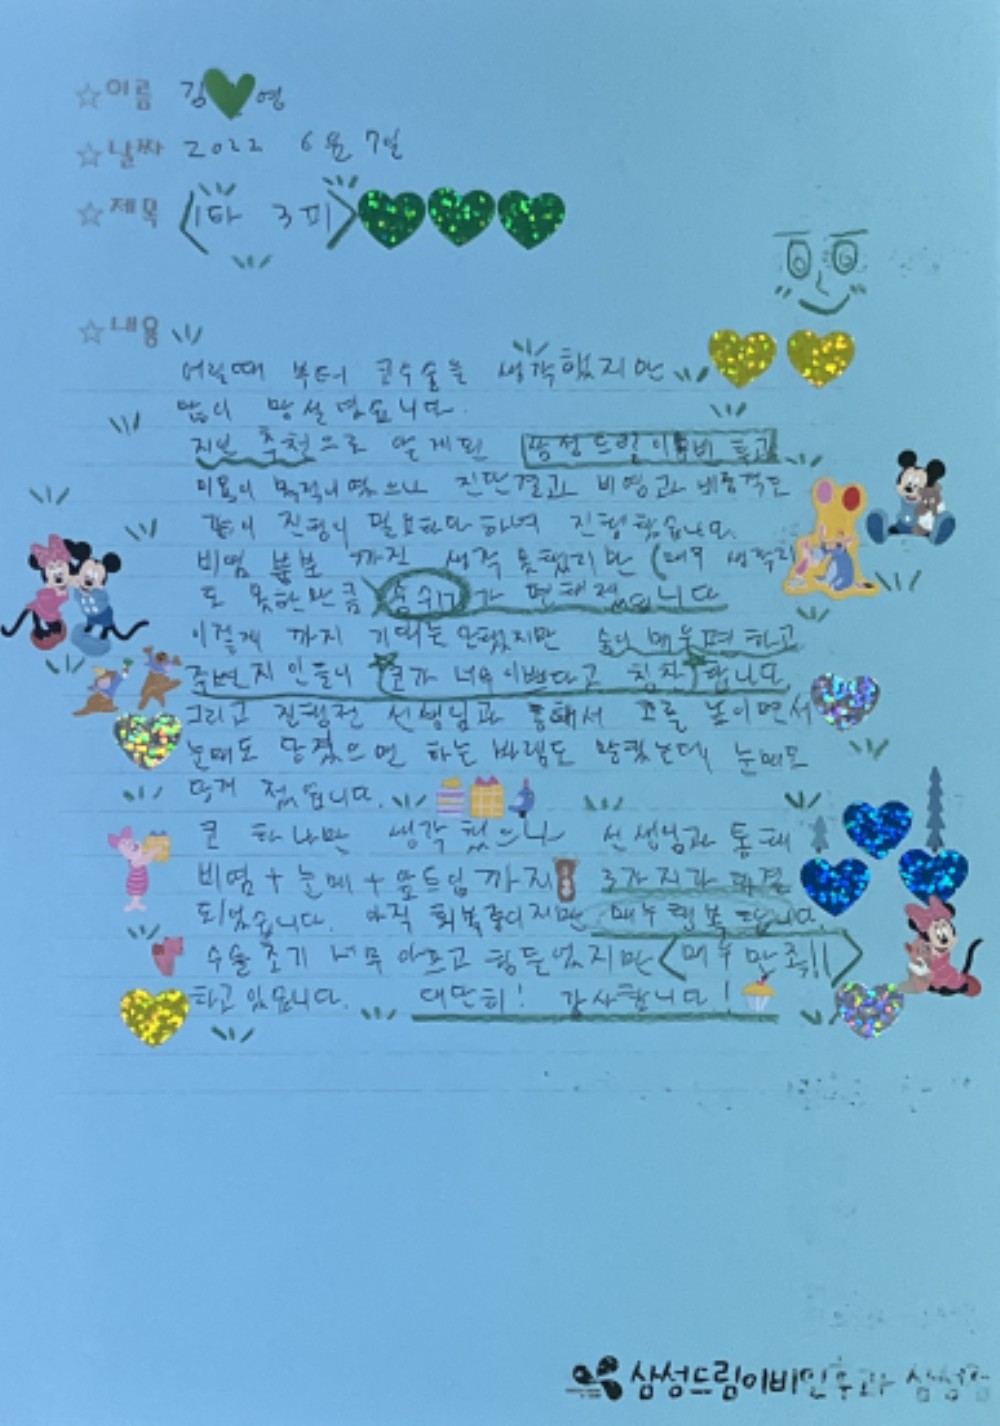 ☆이름 김 영
☆날짜 2022 6월 7일
☆제목 <1타 3피>
☆내용
어릴때 부터 코수술을 생각했지만
많이 망설였습니다.
지인 추천으로 알게된 삼성드림이비인후과
미용이 목적이였으나 진단결과 비염과 비중격도
같이 진행이 필요하다 하여 진행했습니다.
비염 부분 까진 생각 못했지만 (매우 생각지
도 못한만큼) 숨쉬기가 편해졌습니다
이렇게 까지 기대는 안했지만 숨이 매우편하고
주변 지인들이 코가 너무 이쁘다고 칭찬 합니다.
그리고 진행전 선생님과 통해서 코를 높이면서
눈매도 당겼으면 하는 바램도 말했는데, 눈매도
당겨 졌습니다.
코 하나만 생각했으나 선생님과 통해
비염+눈매+앞트임까지 3가지가 해결
되었습니다. 아직 회복중이지만, 매우행복합니다.
수술초기 너무 아프고 힘들었지만 <매우 만족!!>
하고 있습니다. 대단히! 감사합니다!
삼성드림이비인후과 삼성점